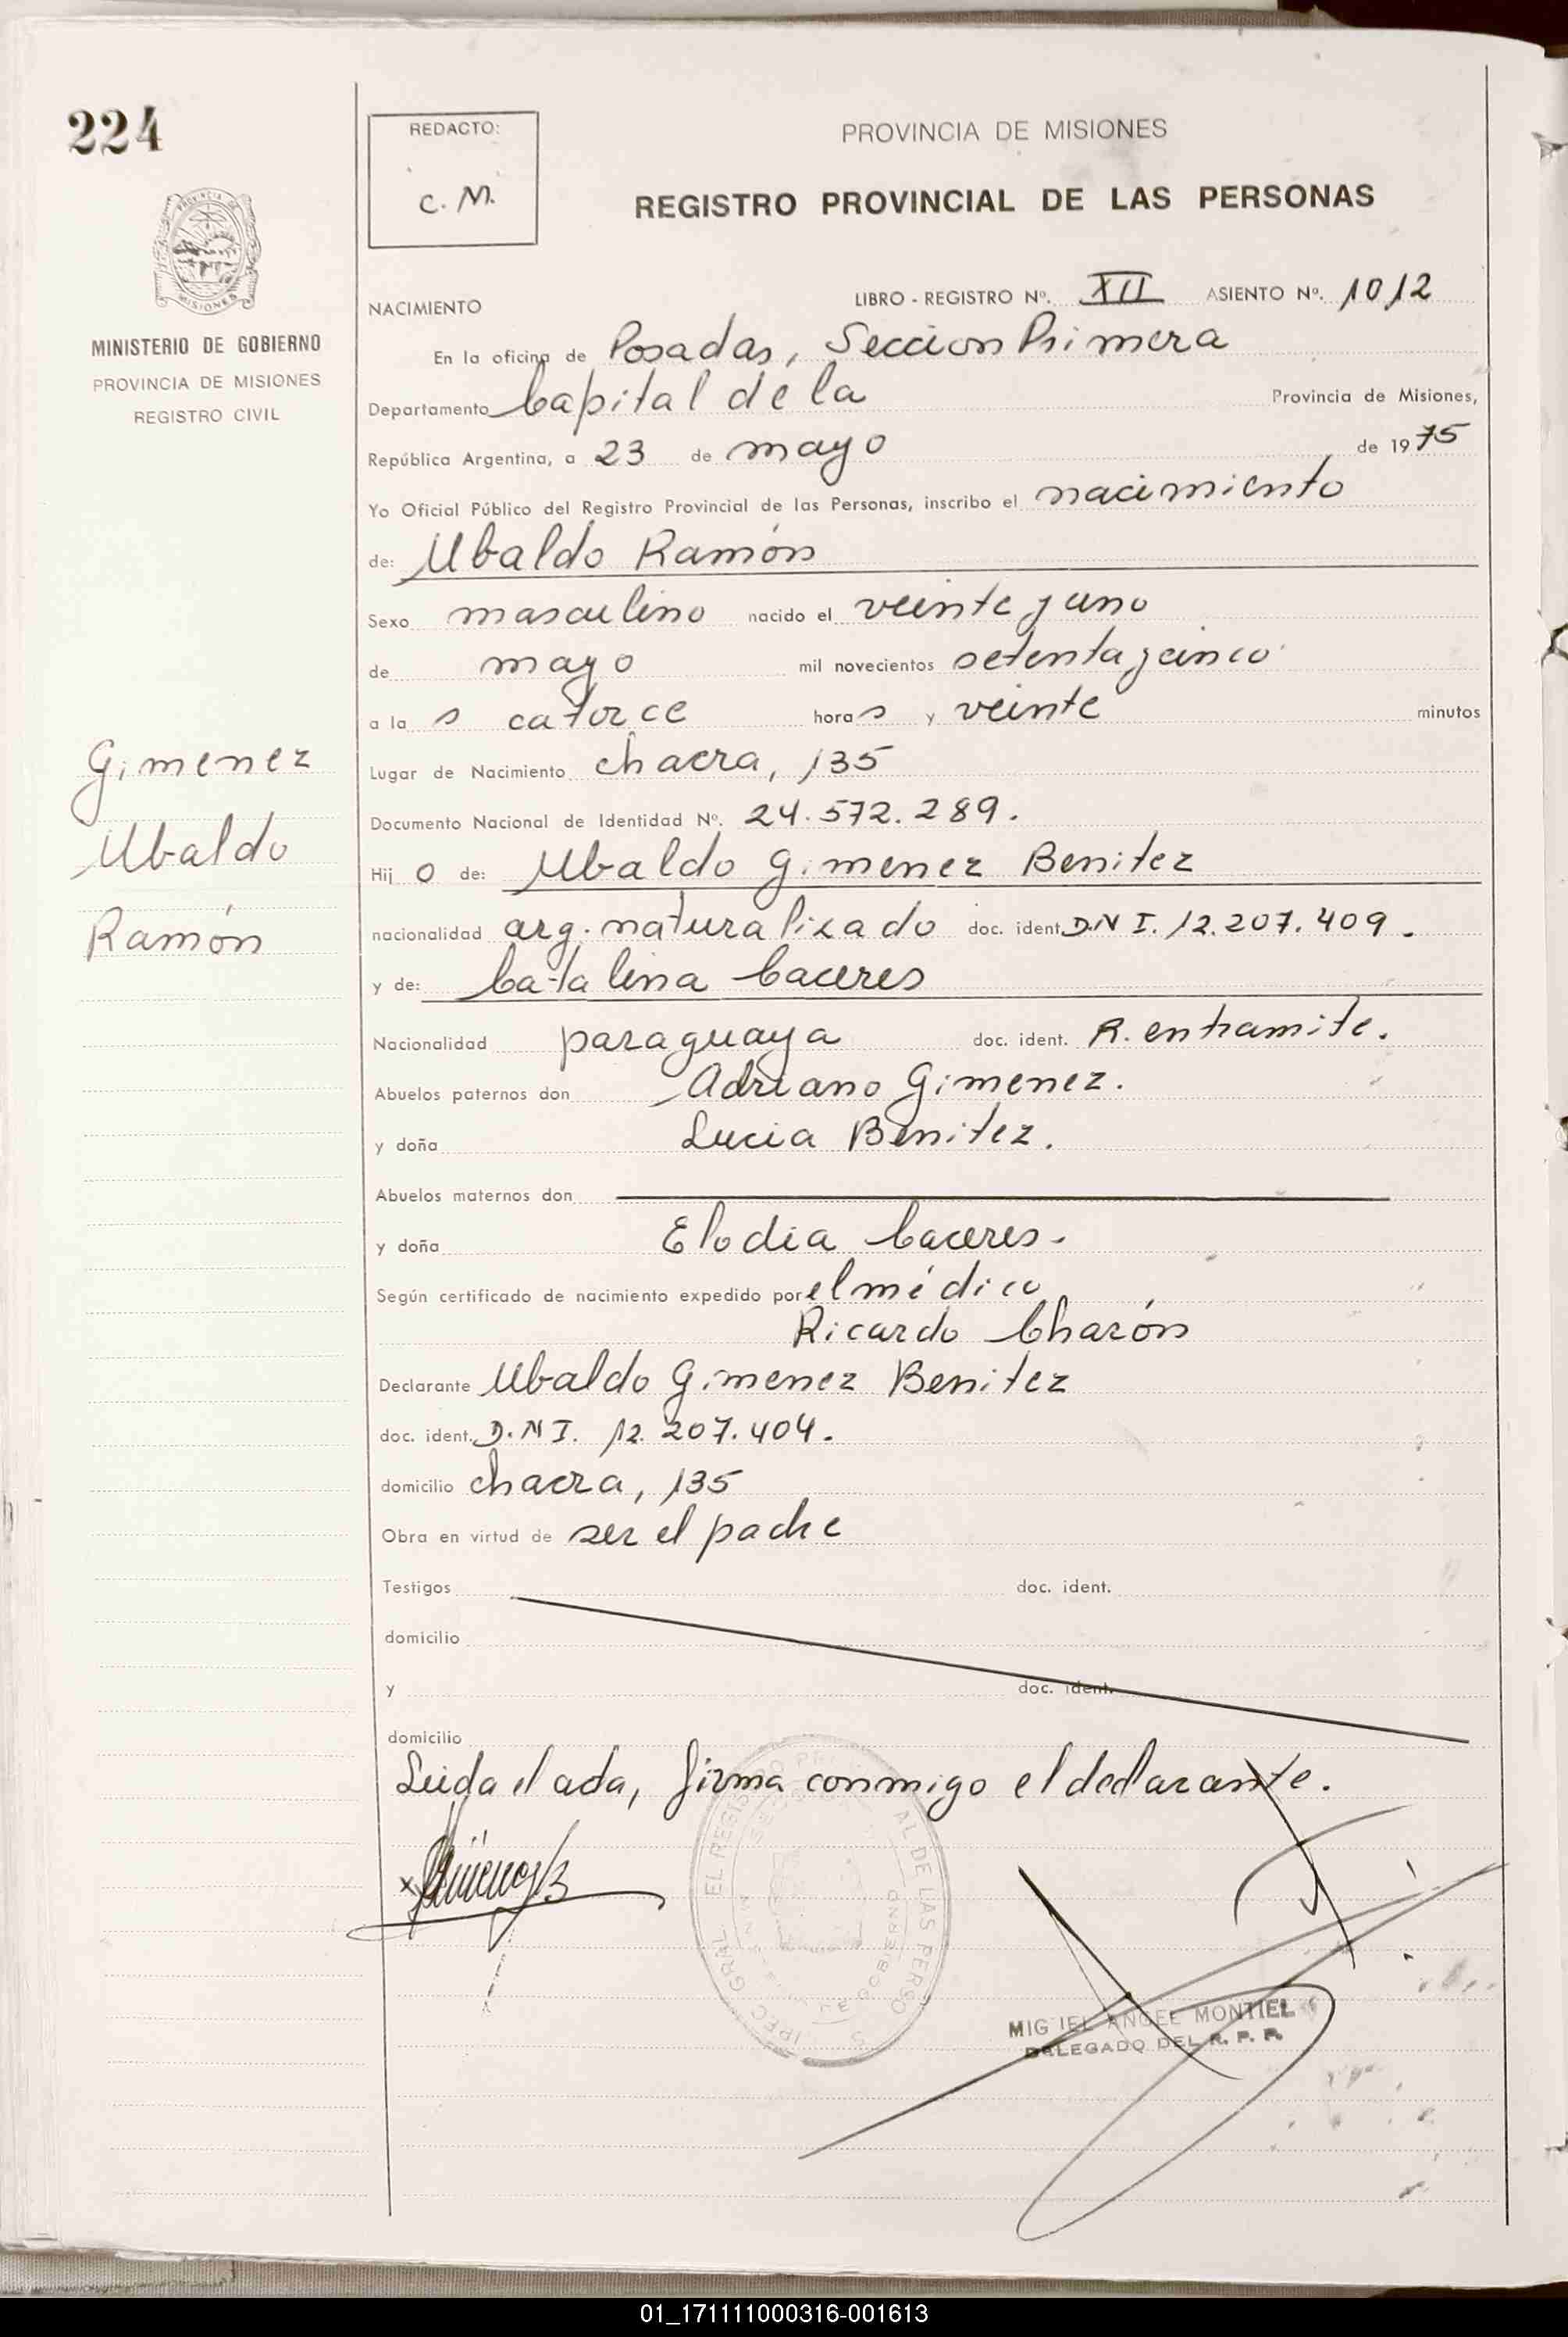 224
REDACTO:
C. M.
PROVINCIA DE MISIONES
REGISTRO PROVINCIAL DE LAS PERSONAS
MISIONES
MINISTERIO DE GOBIERNO
PROVINCIA DE MISIONES
REGISTRO CIVIL
NACIMIENTO
LIBRO - REGISTRO Nº. XII ASIENTO Nº. 1012
En la oficina de Posadas, Seccion Primera
Departamento Capital de la Provincia de Misiones,
República Argentina, a 23 de mayo de 1975
Yo Oficial Público del Registro Provincial de las Personas, inscribo el nacimiento
de: Ubaldo Ramón
Sexo masculino nacido el veinte y uno
de mayo mil novecientos setenta y cinco
a la s catorce hora s y veinte minutos
Lugar de Nacimiento chacra, 135
Documento Nacional de Identidad Nº. 24.572.289.
Hij o de: Ubaldo Gimenez Benitez
nacionalidad arg. naturalizado doc. ident. D.N I. 12.207.409.
y de: Catalina Caceres
Nacionalidad paraguaya doc. ident. R. en tramite.
Abuelos paternos don Adriano Gimenez.
y doña Lucia Benitez.
Abuelos maternos don
y doña Elodia Caceres.
Según certificado de nacimiento expedido por el médico
Ricardo Charón
Declarante Ubaldo Gimenez Benitez
doc. ident. D.N I. 12.207.404.
domicilio chacra, 135
Obra en virtud de ser el padre
Testigos doc. ident.
domicilio
y doc. ident.
domicilio
Leida el acta, firma conmigo el declarante.
Gimenez
Ubaldo
Ramón
MIGUEL ANGEL MONTIEL
DELEGADO DEL R. P. P.
01_171111000316-001613